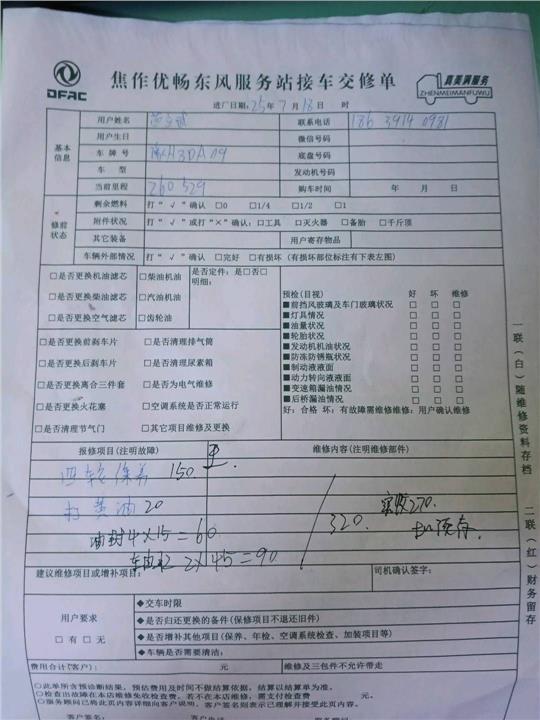 DFAC
焦作优畅东风服务站接车交修单
真美满服务
ZHENMEIMANFUWU
进厂日期:25年7月18日 时
基本信息
用户姓名
联系电话 186 3914 0981
用户生日
微信号码
车牌号 豫H3DA09
底盘号
车型
发动机号码
当前里程 260529
购车时间 年 月 日
修前状态
剩余燃料 打“√”确认 □0 □1/4 □1/2 □1
附件状况 打“√”或打“×”确认:□工具 □灭火器 □备胎 □千斤顶
其它装备
用户寄存物品
车辆外部情况 打“√”确认 □完好 □有损坏(有损部位标注有下表左图)
□是否更换机油滤芯 □柴油机油
是否定件:是□否□
明细:
□是否更换柴油滤芯 □汽油机油
□是否更换空气滤芯 □齿轮油
预检(目视) 好 坏 维修
■前挡风玻璃及车门玻璃状况 □ □ □
■灯具情况 □ □ □
■油量状况 □ □ □
■轮胎状况 □ □ □
■发动机机油状况 □ □ □
■防冻防锈瓶状况 □ □ □
■制动液液面 □ □ □
■动力转向液液面 □ □ □
■变速箱漏油情况 □ □ □
■后桥漏油情况 □ □ □
好:合格 坏:有故障需维修维修:用户确认维修
□是否更换前刹车片 □是否清理排气筒
□是否更换后刹车片 □是否清理尿素箱
□是否更换离合三件套 □是否为电气维修
□是否更换火花塞 □空调系统是否正常运行
□是否清理节气门 □其它项目维修及更换
报修项目(注明故障)
维修内容(注明维修部件)
四轮保养 150
打黄油 20
油封4×15=60
2×45=90
320.
实收270.
扣预存.
建议维修项目或增补项目:
司机确认签字:
用户要求
□有□无
◆交车时限
◆是否归还更换的备件(保修项目不退还旧件)
◆是否增补其他项目(保养、年检、空调系统检查、加装项目等)
◆车辆是否需要清洁:
费用合计(客户): 元
维修及三包件不允许带走
○此单所含预诊断结果,预估费用及时间不做结算依据,结算以结算单为准。
○检查出故障在本店维修免收检查费。若不在本店维修,需支付检查费 元。
○服务顾问已将此页内容详细向客户说明。客户签名则表示已理解并接受此页内容。
客户签名:
客户电话
服务顾问签名:
一联(白)随维修资料存档
二联(红)财务留存